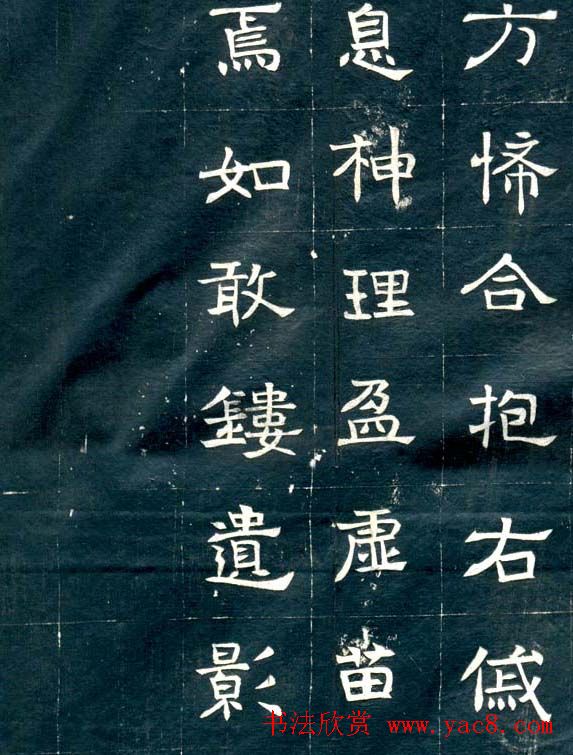 方合抱右
息神理盈虛苗
焉如敢鏤遺影
书法欣赏 www.yac8.com